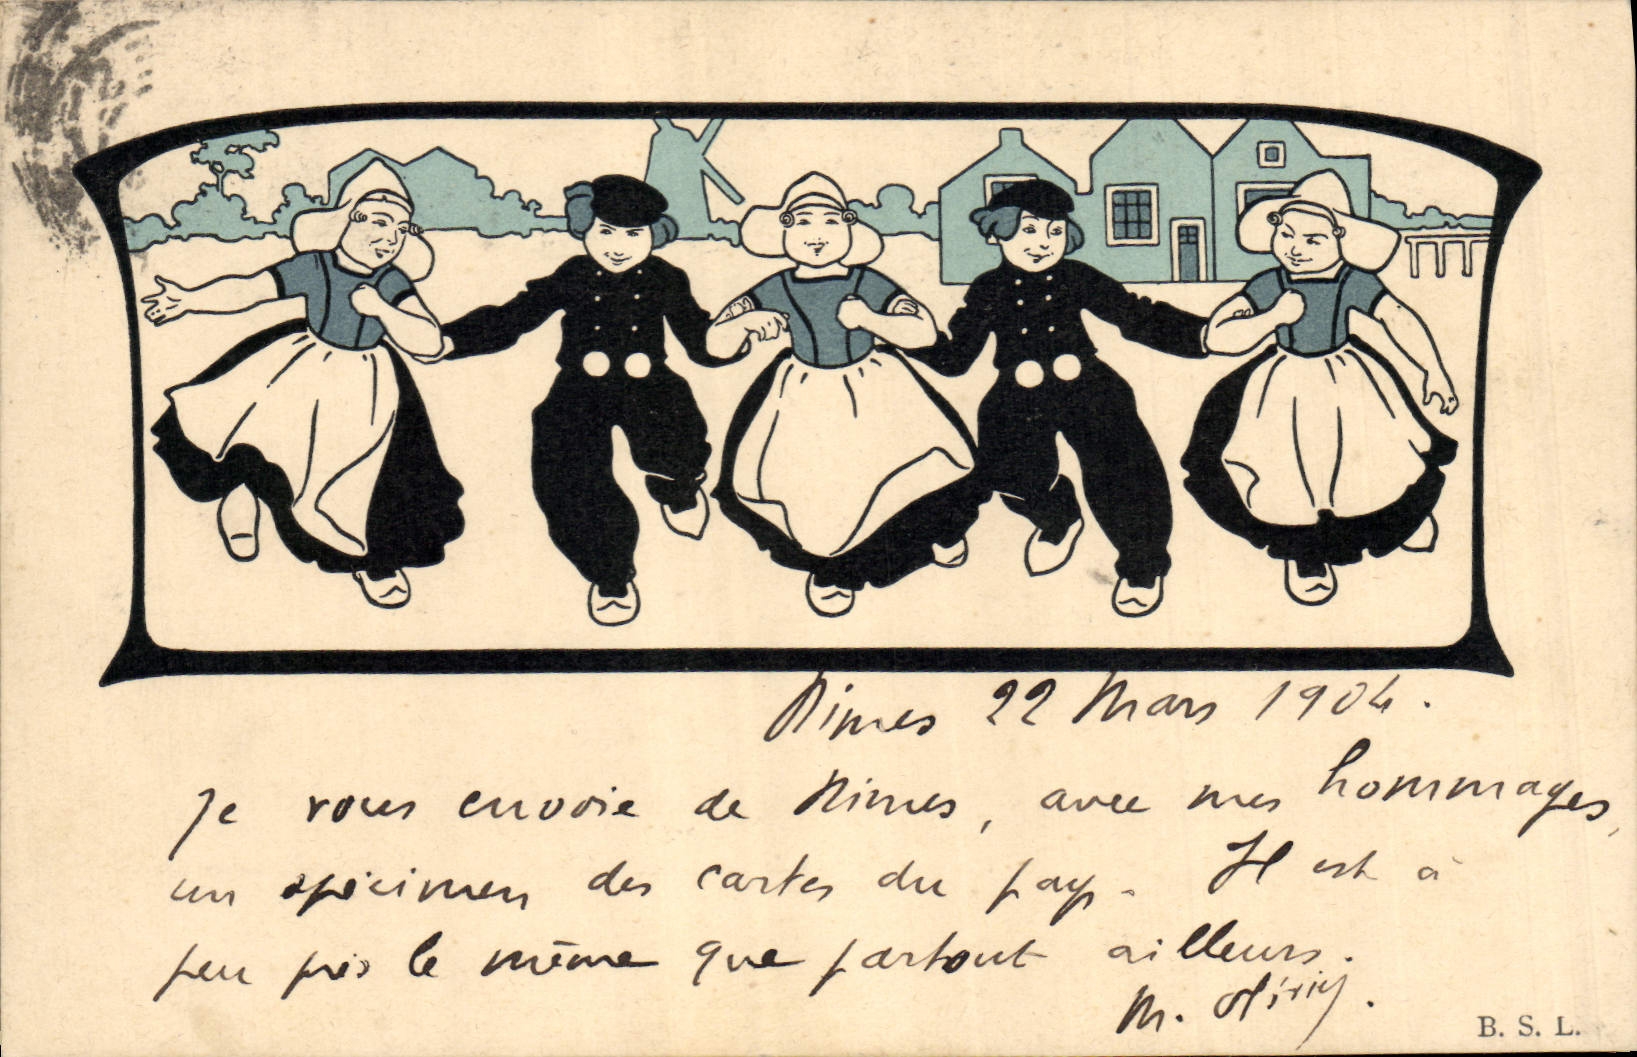 Nimes 22 Mars 1904.
Je vous envoie de Nimes, avec mes hommages,
un spécimen des cartes du pays. Il est à
peu près le même que partout ailleurs.
M.
B. S. L.